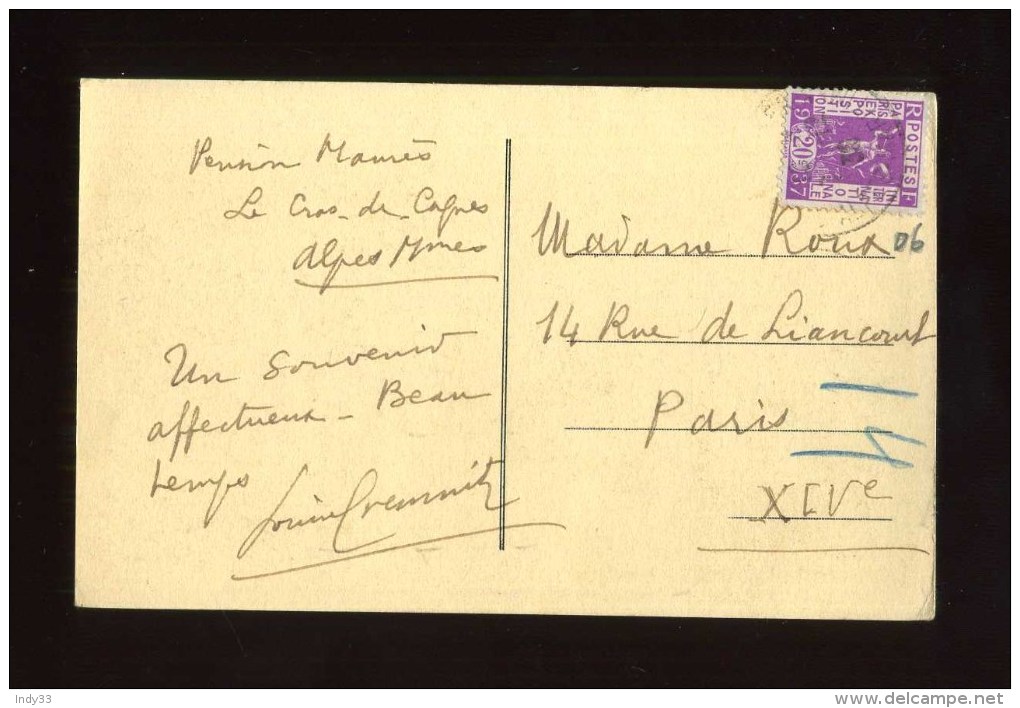 Pension
Le Cros-de-Cagnes
Alpes Mmes
Un souvenir
affectueux - Beau
temps
Madame Roux
06
14 Rue de Liancourt
Paris
XIVe
RF POSTES
PARIS EXPOSITION
INTERNATIONALE
1937
20
Indy33
delcampe.net